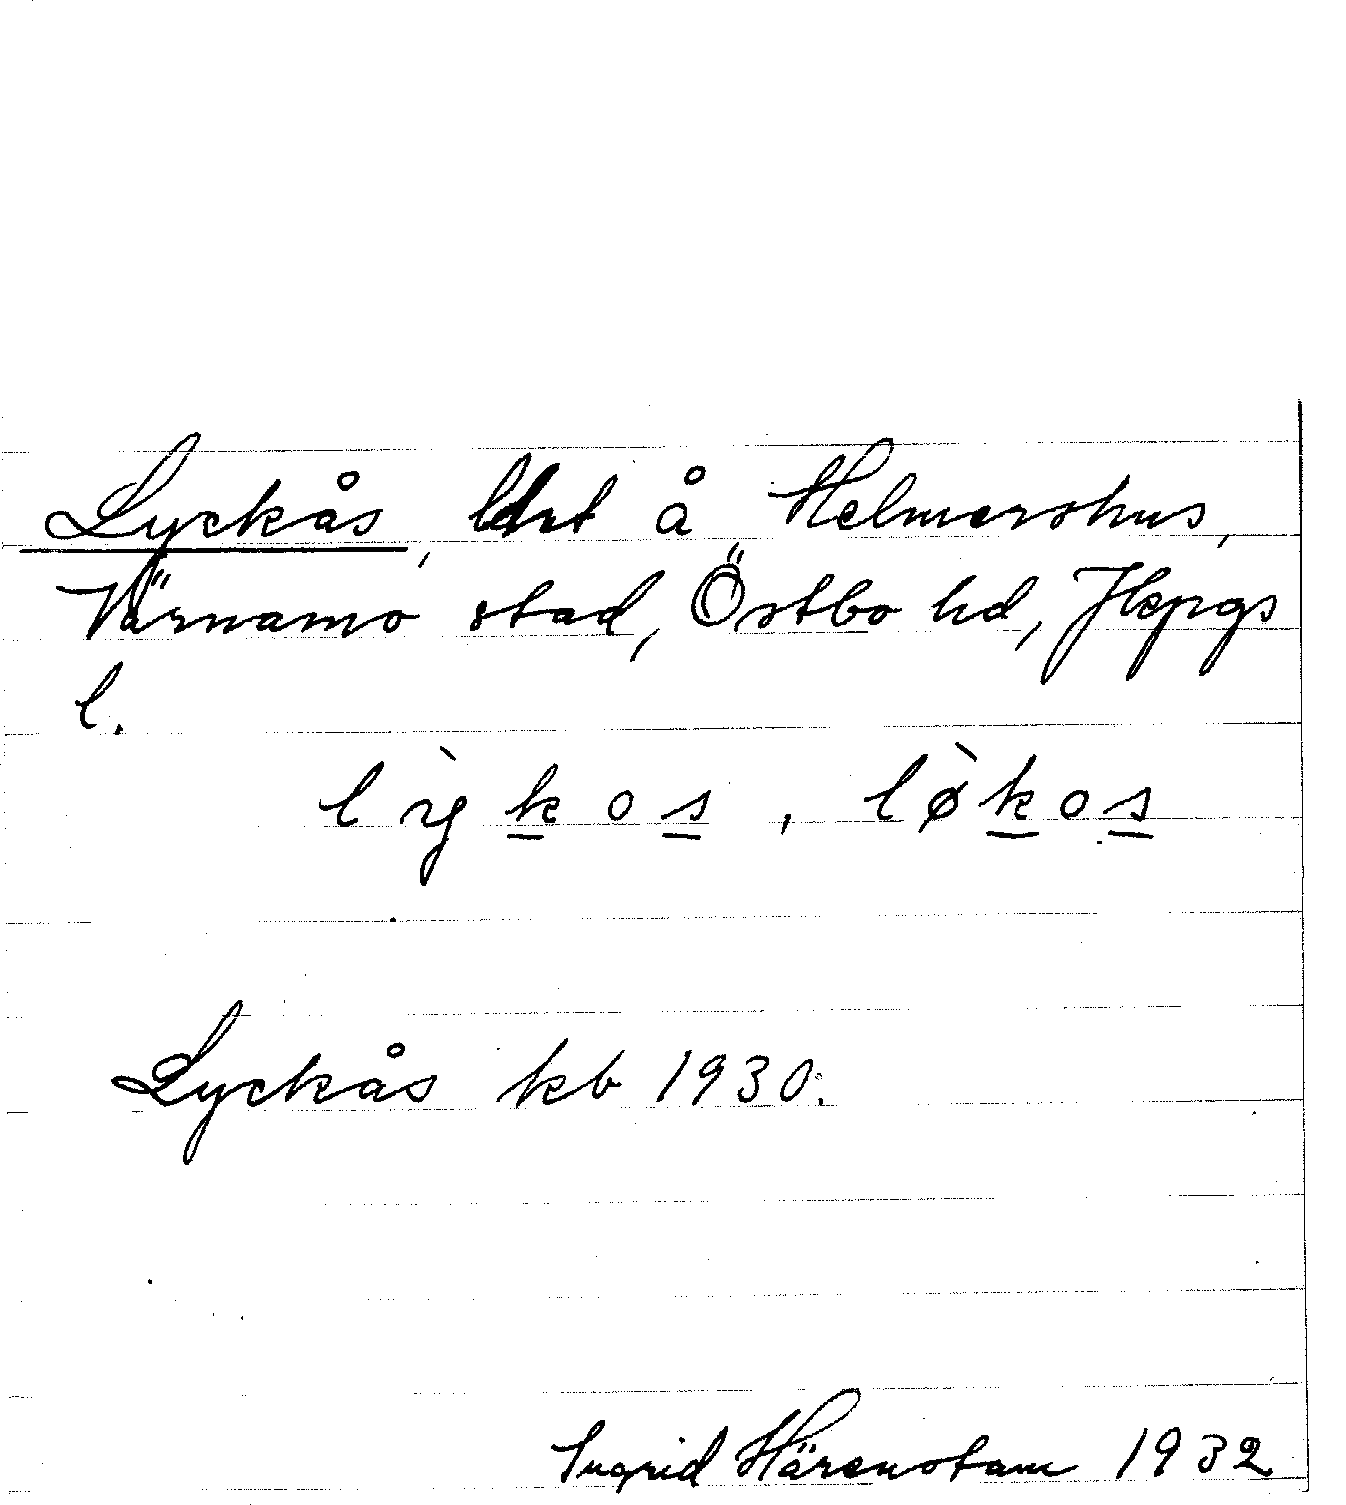 Lyckås, ldet å Helmershus,
Värnamo stad, Östbo hd, Jkpgs
l.
lỳkos, lø̀kos
Lyckås kb 1930.
Ingrid Härenstam 1932